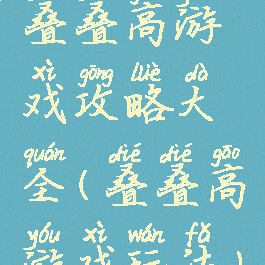 叠叠高游
xì gōng lüè dà
戏攻略大
quán dié dié gāo
全(叠叠高
yóu xì wán fǎ
游戏玩法)